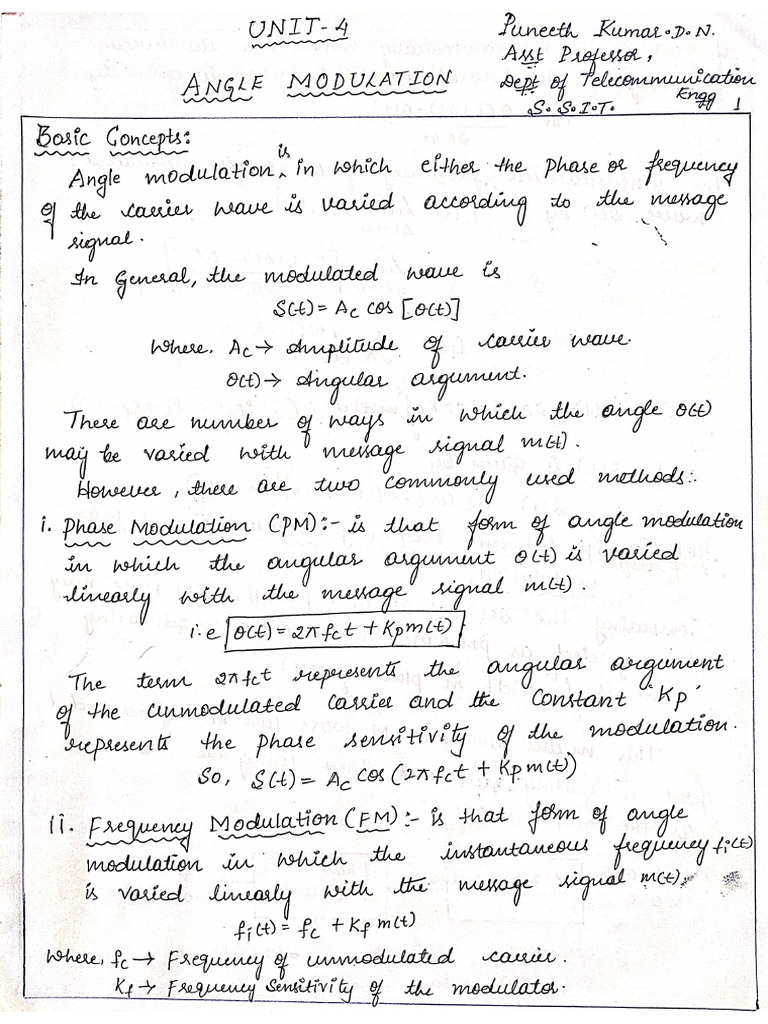 UNIT-4
Puneeth Kumar.D.N.
Asst Professor,
ANGLE MODULATION
Dept of Telecommunication
Engg
S.S.I.T.
1
Basic Concepts:
Angle modulation is in which either the phase or frequency
of the carrier wave is varied according to the message
signal.
In General, the modulated wave is
S(t) = Ac cos [θ(t)]
Where, Ac → Amplitude of carrier wave.
θ(t) → Angular argument.
There are number of ways in which the angle θ(t)
may be varied with message signal m(t).
However, there are two commonly used methods:.
i. Phase Modulation (PM):- is that form of angle modulation
in which the angular argument θ(t) is varied
linearly with the message signal m(t).
i.e θ(t) = 2πfct + Kpm(t)
The term 2πfct represents the angular argument
of the unmodulated carrier and the constant 'Kp'
represents the phase sensitivity of the modulation.
So, S(t) = Ac cos (2πfct + Kpm(t))
ii. Frequency Modulation (FM):- is that form of angle
modulation in which the instantaneous frequency fi(t)
is varied linearly with the message signal m(t).
fi(t) = fc + Kf m(t)
Where, fc → Frequency of unmodulated carrier.
Kf → Frequency Sensitivity of the modulator.